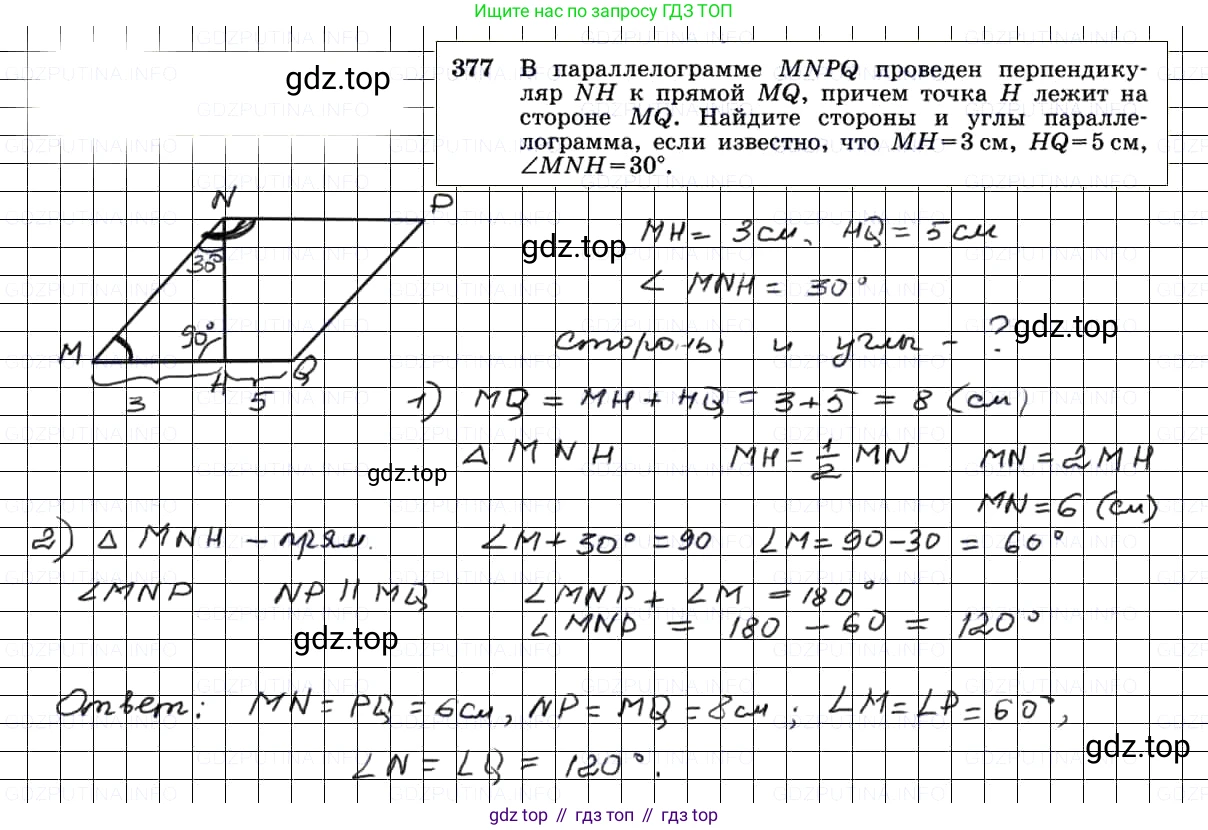 Ищите нас по запросу ГДЗ ТОП
377 В параллелограмме MNPQ проведен перпендику-
ляр NH к прямой MQ, причем точка H лежит на
стороне MQ. Найдите стороны и углы паралле-
лограмма, если известно, что MH=3 см, HQ=5 см,
∠MNH=30°.
gdz.top
N
P
30°
90°
M
H
Q
3
5
MH = 3 см, HQ = 5 см
gdz.top
∠ MNH = 30°
стороны и углы - ?
gdz.top
1) MQ = MH + HQ = 3+5 = 8 (см)
△ MNH MH = 1/2 MN MN = 2MH
gdz.top
MN = 6 (см)
2) △ MNH – прям. ∠M + 30° = 90 ∠M = 90-30 = 60°
∠MNP NP || MQ ∠MNP + ∠M = 180°
∠MNP = 180 - 60 = 120°
gdz.top
Ответ: MN = PQ = 6см, NP = MQ = 8см; ∠M = ∠P = 60°,
∠N = ∠Q = 120°.
gdz.top
gdz top // гдз топ // gdz top
GDZPUTINA.INFO